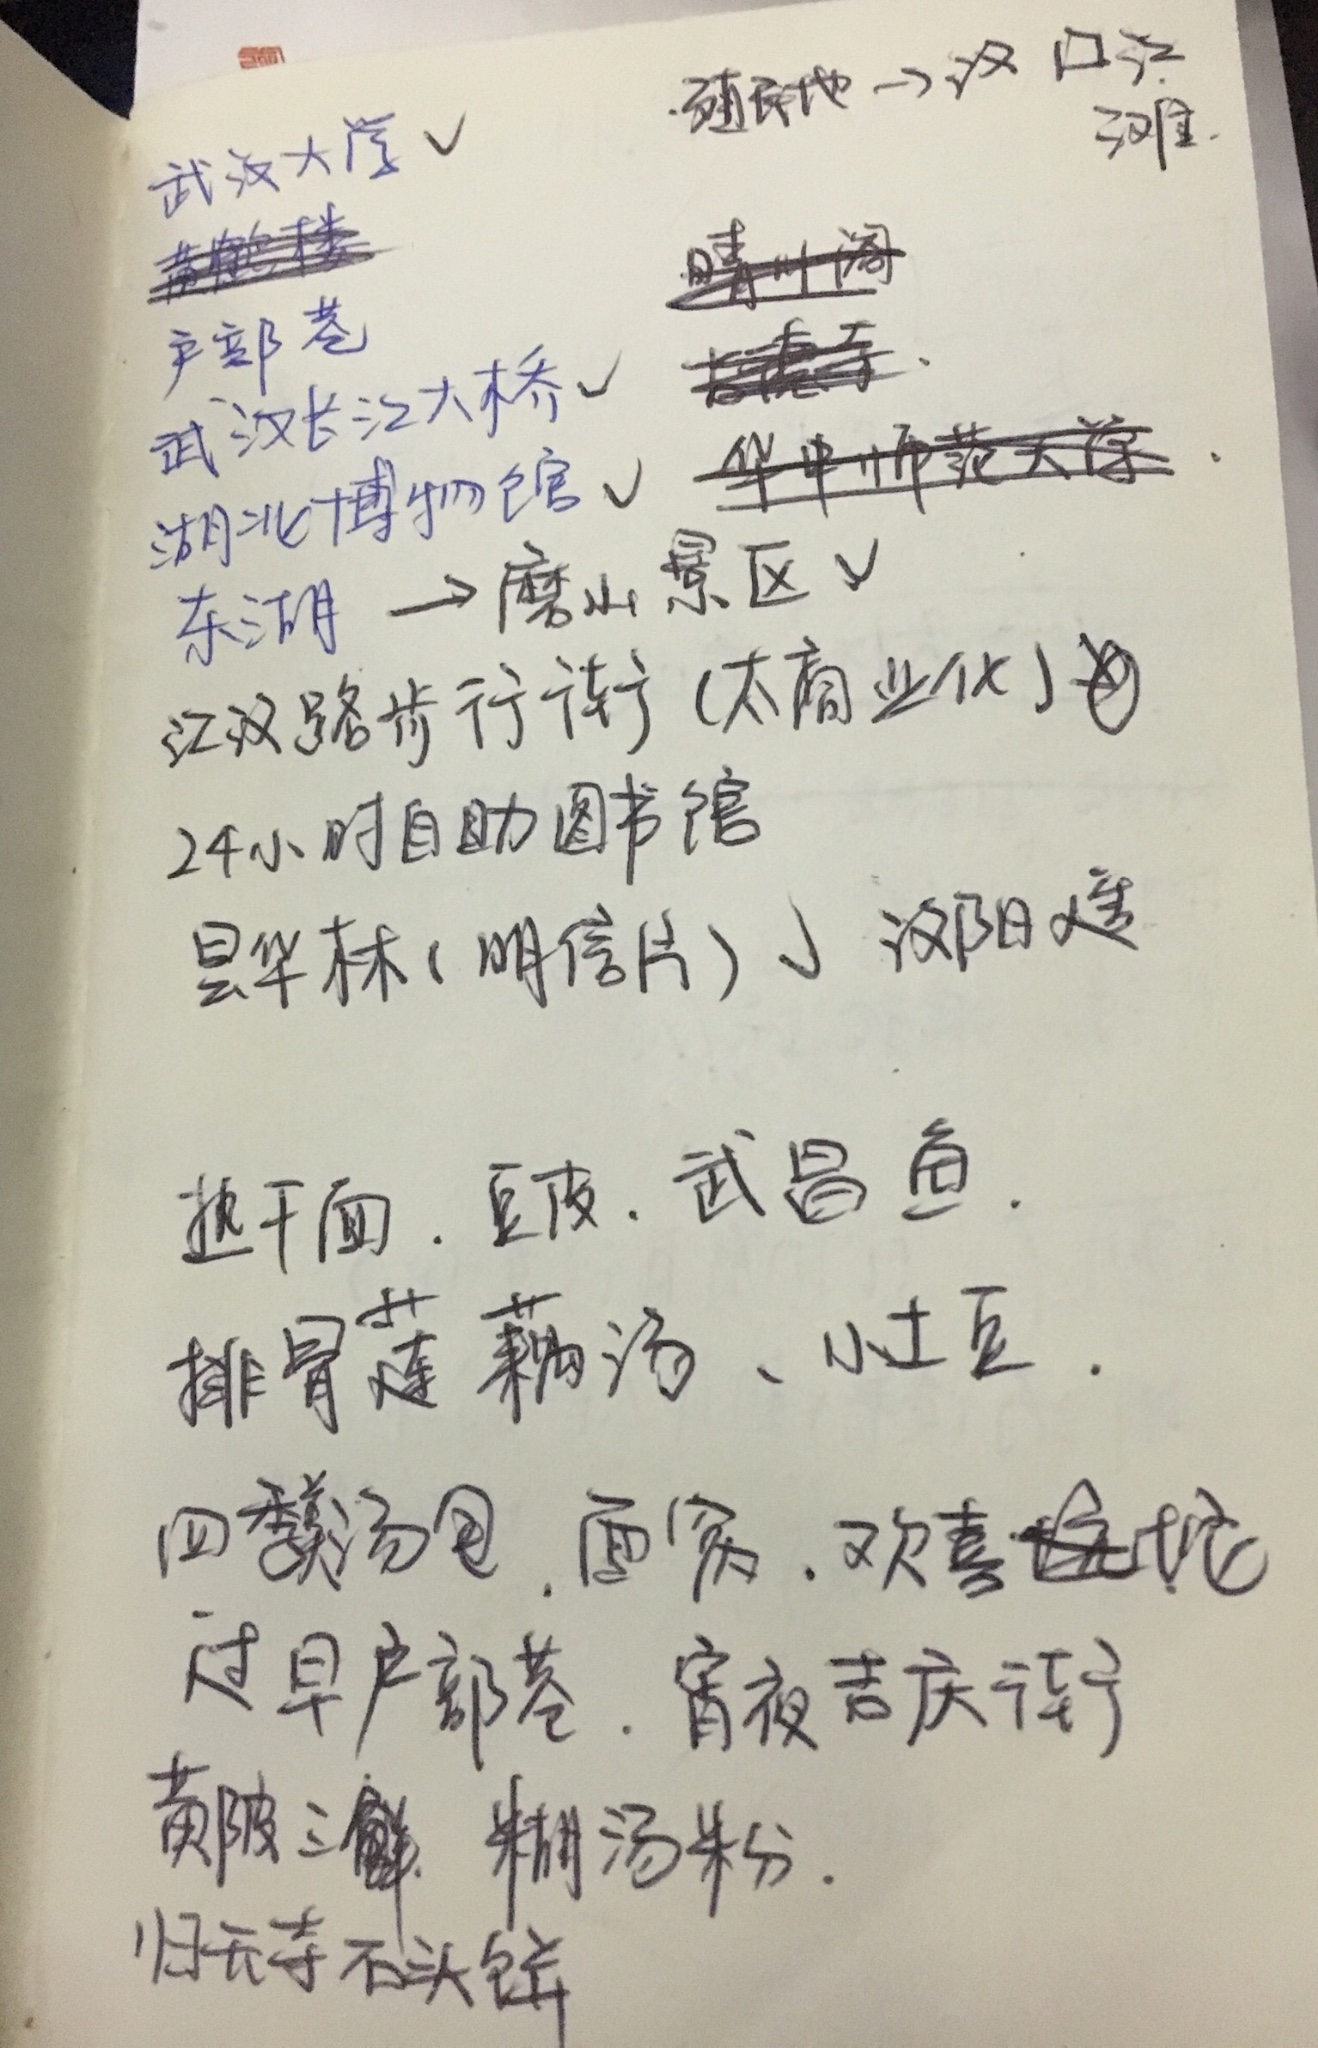 殖民地→汉口江
滩.
武汉大学✓
黄鹤楼
晴川阁
户部巷
古德寺.
武汉长江大桥✓
华中师范大学.
湖北博物馆✓
东湖→磨山景区✓
江汉路步行街(太商业化)
24小时自助图书馆
昙华林(明信片)✓ 汉阳造
热干面.豆皮.武昌鱼.
排骨莲藕汤、小土豆.
四季美汤包.面窝.欢喜坨
过早户部巷.宵夜吉庆街
黄陂三鲜 糊汤粉.
归元寺石头饼